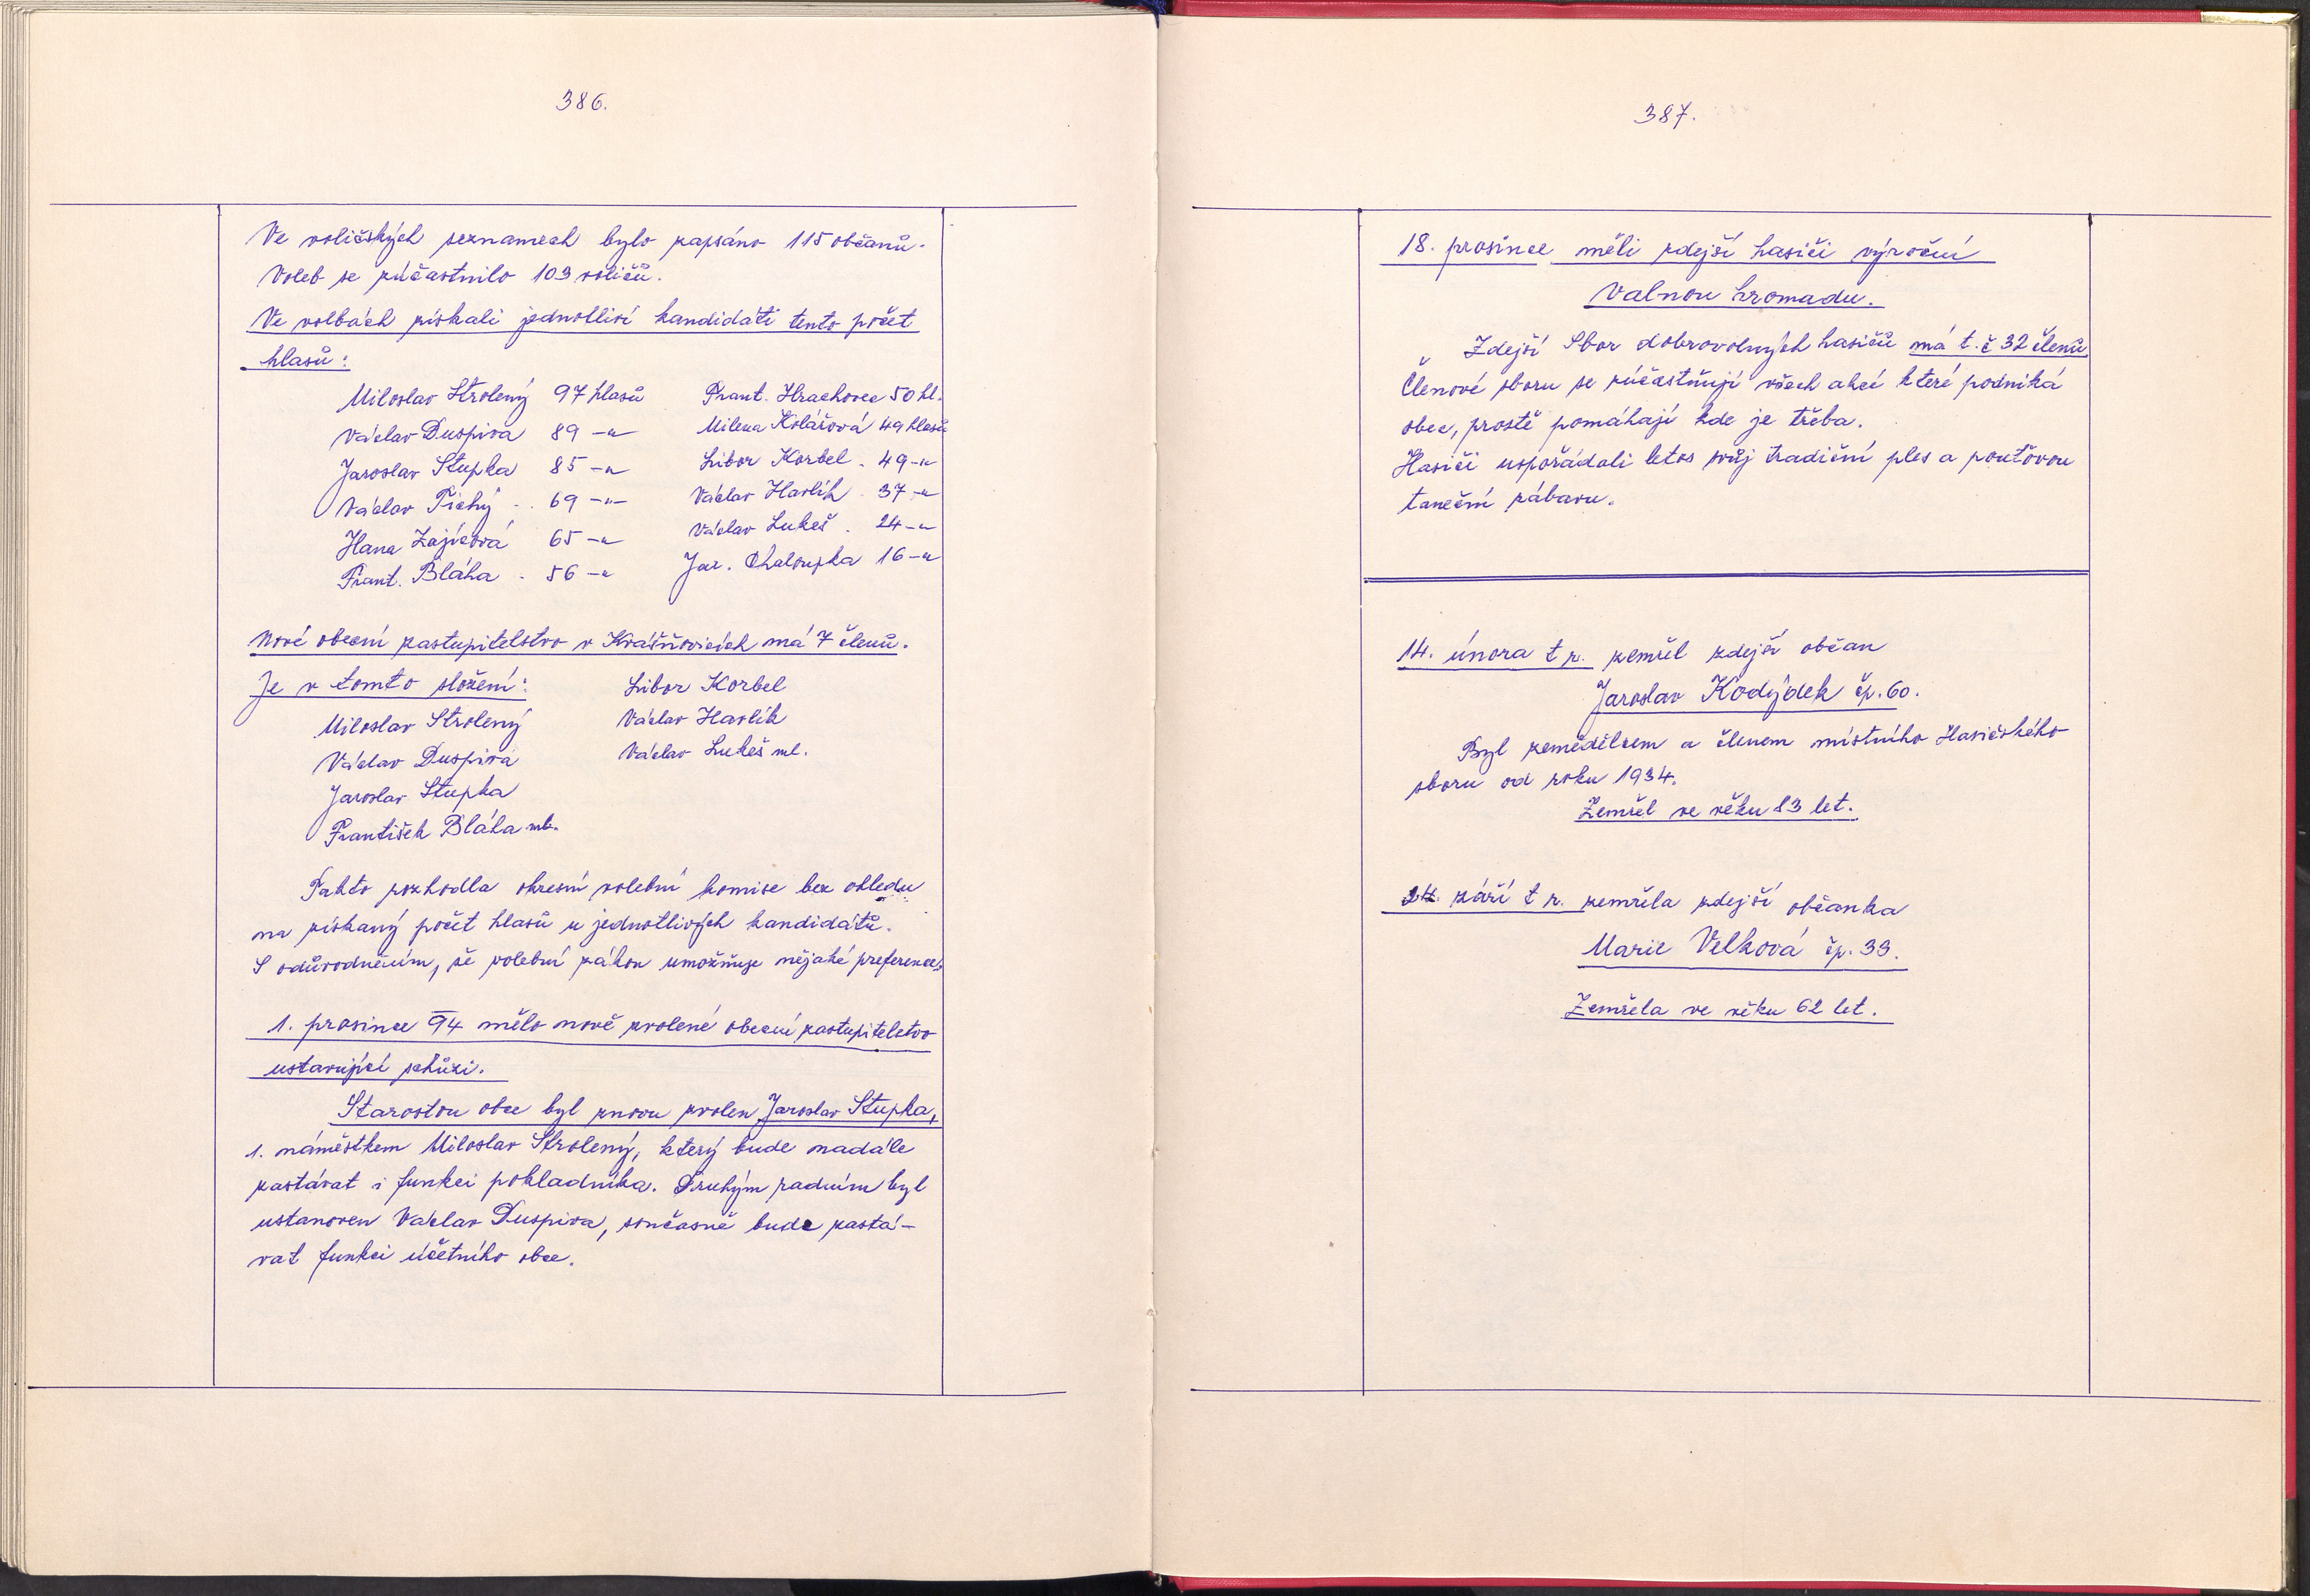 386.
Ve voličských seznamech bylo zapsáno 115 občanů.
Voleb se zúčastnilo 103 voličů.
Ve volbách získali jednotliví kandidáti tento počet
hlasů:
Miloslav Strolený 97 hlasů
Václav Duspiva 89 -"-
Jaroslav Stupka 85 -"-
Václav Tichý . . 69 -"-
Hana Zajícová 65 -"-
Frant. Bláha . 56 -"-
Frant. Hrachovec 50 hl.
Milena Kolářová 49 hlasů
Libor Korbel . 49 -"-
Václav Havlík . 37 -"-
Václav Lukeš . 24 -"-
Jar. Chaloupka 16 -"-
Nové obecní zastupitelstvo v Krášňovicích má 7 členů.
Je v tomto složení:
Miloslav Strolený
Václav Duspiva
Jaroslav Stupka
František Bláha ml.
Libor Korbel
Václav Havlík
Václav Lukeš ml.
Takto rozhodla okresní volební komise bez ohledu
na získaný počet hlasů u jednotlivých kandidátů.
S odůvodněním, že volební zákon umožňuje nějaké preference.
1. prosince 94 mělo nově zvolené obecní zastupitelstvo
ustavující schůzi.
Starostou obce byl znovu zvolen Jaroslav Stupka,
1. náměstkem Miloslav Strolený, který bude nadále
zastávat i funkci pokladníka. Druhým radním byl
ustanoven Václav Duspiva, současně bude zastá-
vat funkci účetního obce.
387.
18. prosince měli zdejší hasiči výroční
Valnou hromadu.
Zdejší Sbor dobrovolných hasičů má t. č 32 členů
Členové sboru se zúčastňují všech akcí které podniká
obec, prostě pomáhají kde je třeba.
Hasiči uspořádali letos svůj tradiční ples a pouťovou
taneční zábavu.
14. února t r. zemřel zdejší občan
Jaroslav Kodýdek čp. 60.
Byl zemědělcem a členem místního Hasičského
sboru od roku 1934.
Zemřel ve věku 83 let.
24. září t r. zemřela zdejší občanka
Marie Velková čp. 33.
Zemřela ve věku 62 let.